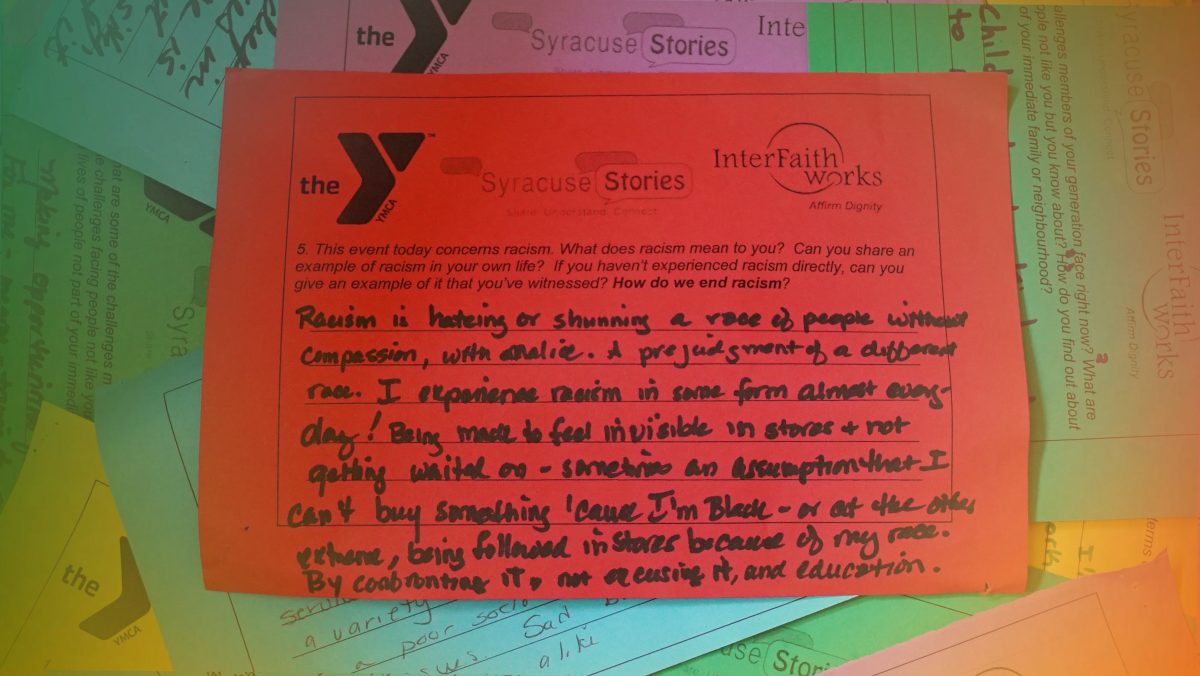 the
YMCA
Syracuse Stories
Inte
the
YMCA
Syracuse Stories
Share. Understand. Connect.
InterFaith
works
Affirm Dignity
5. This event today concerns racism. What does racism mean to you? Can you share an
example of racism in your own life? If you haven't experienced racism directly, can you
give an example of it that you've witnessed? How do we end racism?
Racism is hateing or shunning a race of people without
compassion, with malice. A prejudgment of a different
race. I experience racism in some form almost every-
day! Being made to feel invisible in stores + not
getting waited on - sometimes an assumption that I
can't buy something 'cause I'm Black - or at the other
extreme, being followed in stores because of my race.
By confronting it, not excusing it, and education.
Child
to
allenges members of your generation face right now? What are
ople not like you but you know about? How do you find out about
of your immediate family or neighbourhood?
Syracuse Stories
InterFaith
works
Affirm Dignity
hat are some of the challenges m
e challenges facing people not like you
lives of people not part of your immedi
YMCA
Sy
the
YMCA
a variety
a poor socio
sues. Sad
alike
use Stori